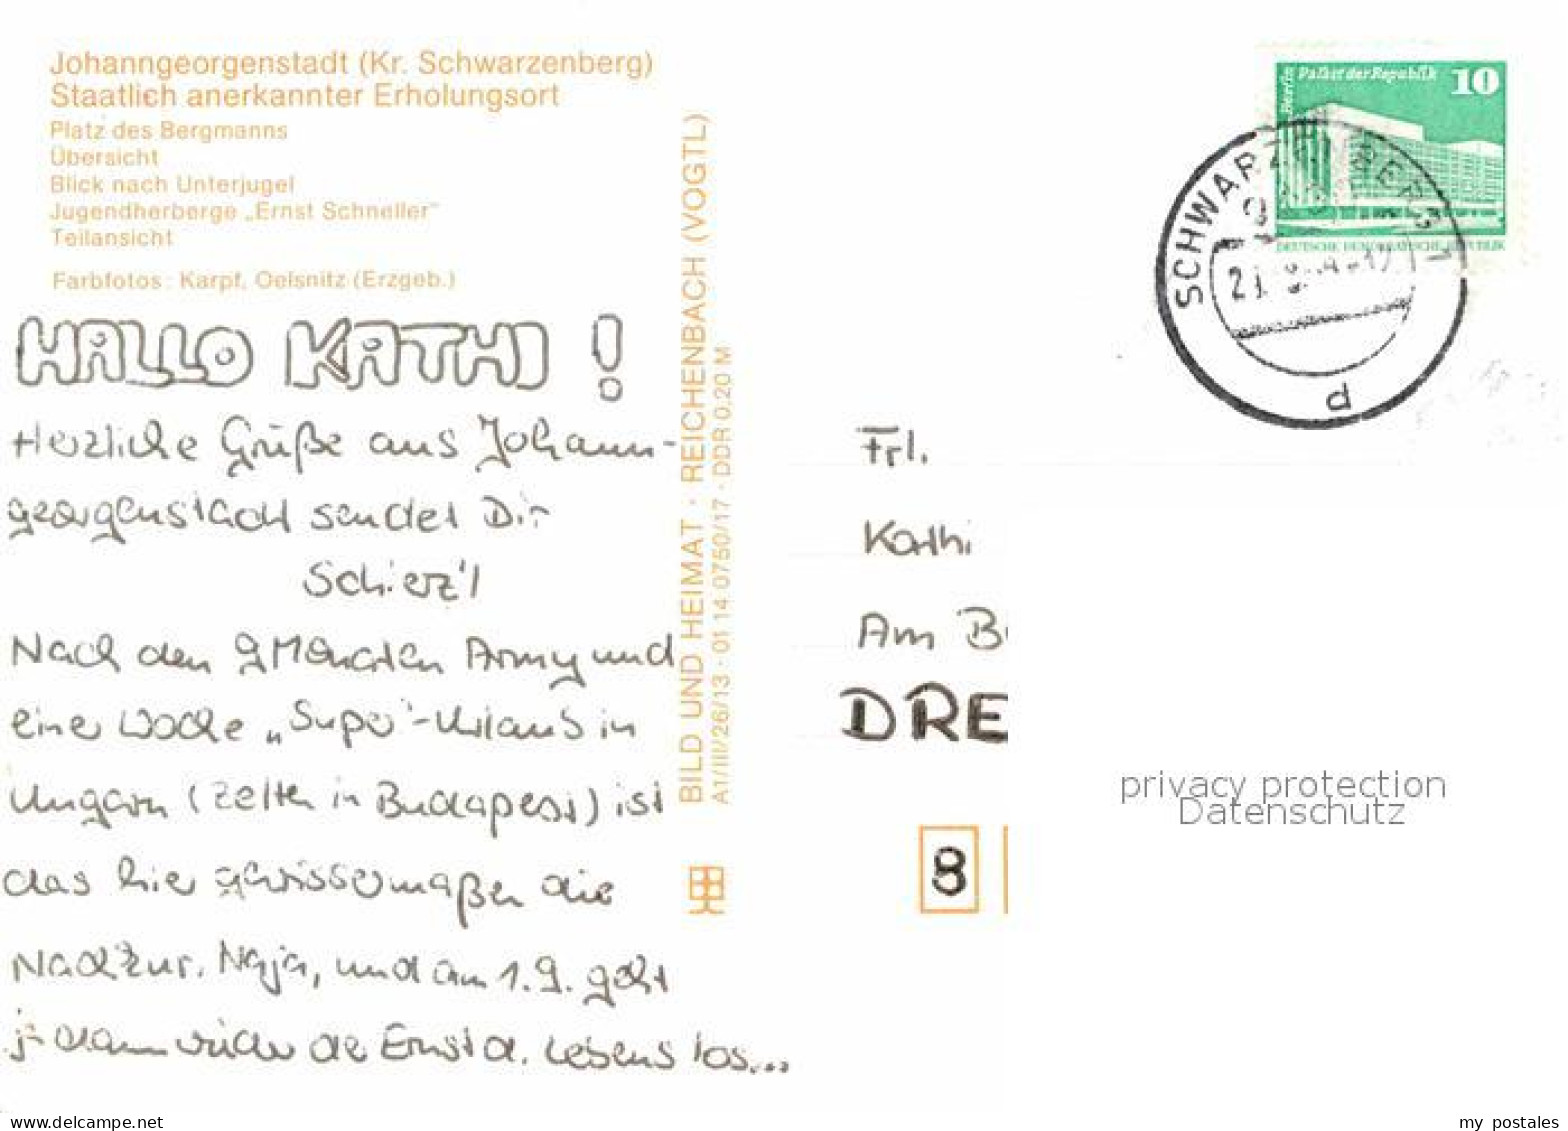 Johanngeorgenstadt (Kr. Schwarzenberg)
Staatlich anerkannter Erholungsort
Platz des Bergmanns
Übersicht
Blick nach Unterjugel
Jugendherberge „Ernst Schneller"
Teilansicht
Farbfotos: Karpf, Oelsnitz (Erzgeb.)
HALLO KATHI !
Herzliche Grüße aus Johann-
georgenstadt sendet Dir
Schierz'l
Nach den 9 Monaten Army und
eine Woche „Super"-Urlaub in
Ungarn (Zelten in Budapest) ist
das hier gewissermaßen die
Nachkur. Naja, und am 1.9. geht
ja dann wieder de Ernst d. Lebens los...
BILD UND HEIMAT · REICHENBACH (VOGTL)
A1/III/26/13 · 01 14 0750/17 · DDR 0,20 M
Berlin Palast der Republik 10
DEUTSCHE DEMOKRATISCHE REPUBLIK
SCHWARZENBERG 1
d
Frl.
Kathi
Am
DRE
8
privacy protection
Datenschutz
my postales